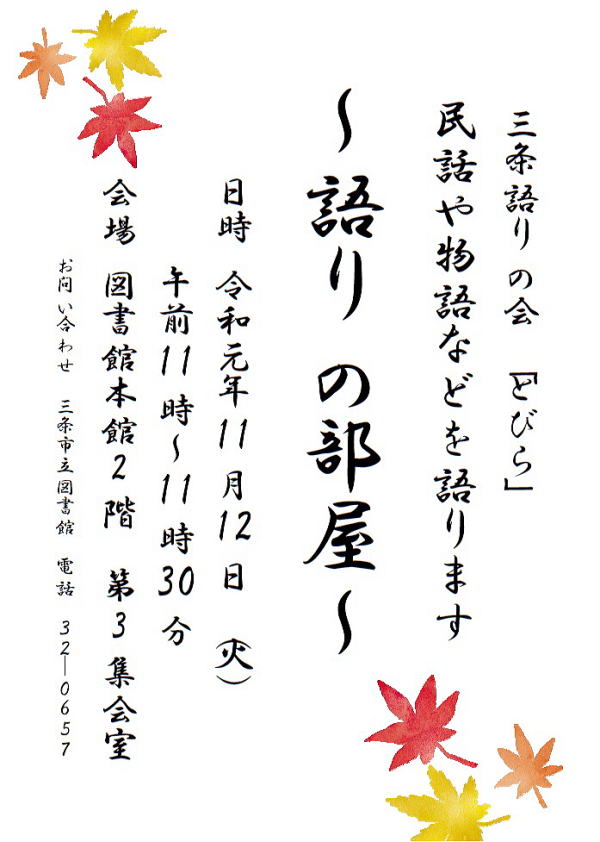 三条語りの会 『とびら」
民話や物語などを語ります
～語りの部屋～
日時 令和元年11月12日（火）
午前11時～11時30分
会場 図書館本館2階 第3集会室
お問い合わせ 三条市立図書館 電話 32―0657